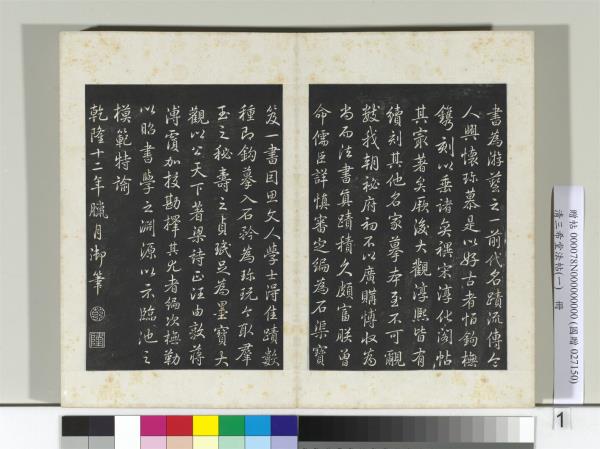 書為游藝之一前代名蹟流傳令
人興懷珍慕是以好古者恒鉤橅
鐫刻以垂諸奕禩宋淳化閣帖
其最著矣厥後大觀淳熙皆有
續刻其他名家摹本至不可覼
數我朝秘府初不以廣購博收為
尚而法書真蹟積久頗富朕曾
命儒臣詳慎審定編為石渠寶
笈一書因思文人學士得佳蹟數
種即鉤摹入石矜為珍玩今取群
玉之秘壽之貞珉足為墨寶大
觀以公天下著梁詩正汪由敦蔣
溥覆加校勘擇其尤者編次橅勒
以昭書學之淵源以示臨池之
模範特諭
乾隆十二年臘月御筆
贈帖 000078N000000000 (國贈 027150)
清三希堂法帖(一) 冊
1